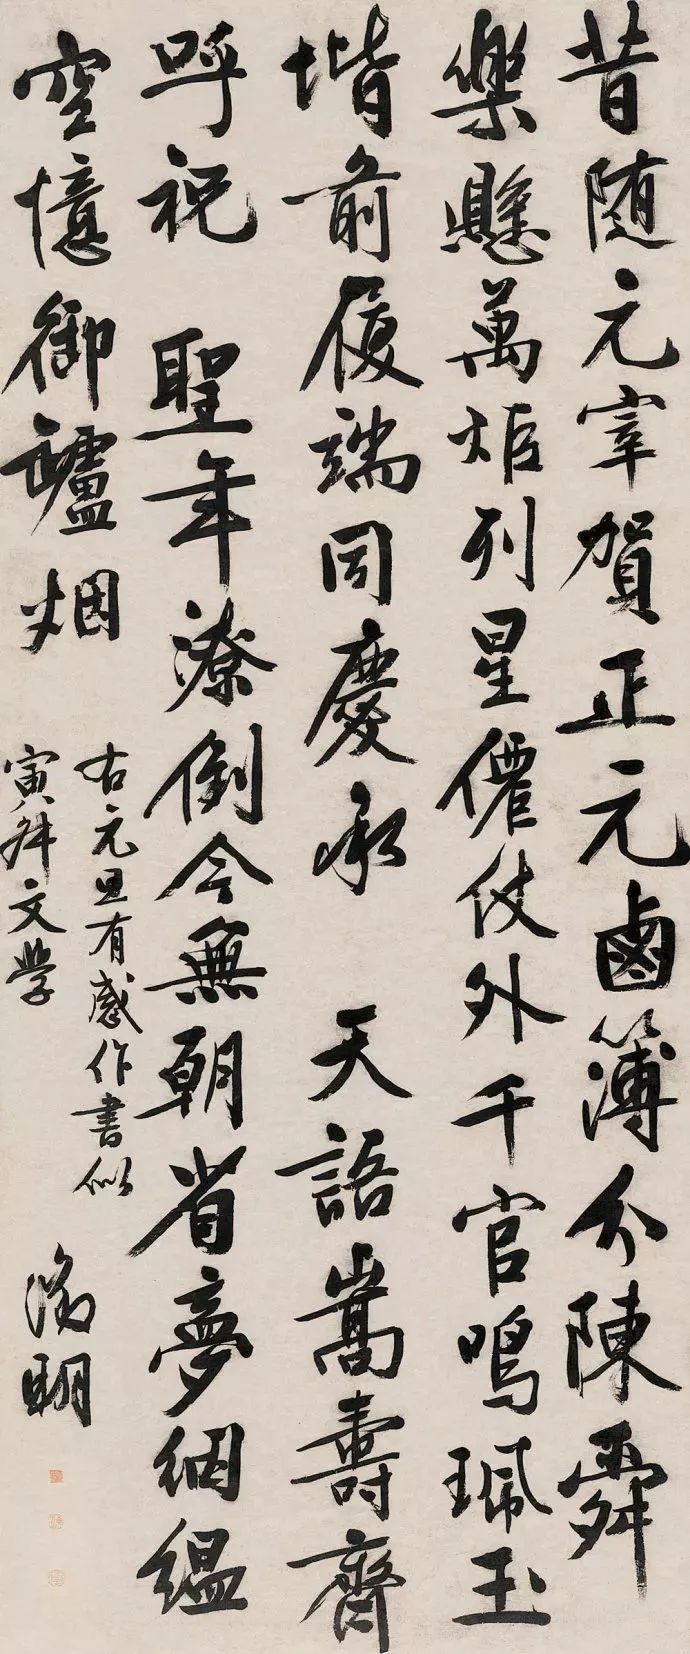 昔随元宰賀正元鹵簿分陳舜
樂懸萬炬列星僊仗外千官鳴珮玉
堦前履端同慶承 天語嵩壽齊
呼祝 聖年潦倒今無朝省夢絪緼
空憶御罏烟
右元旦有感作書似
寅文學
明